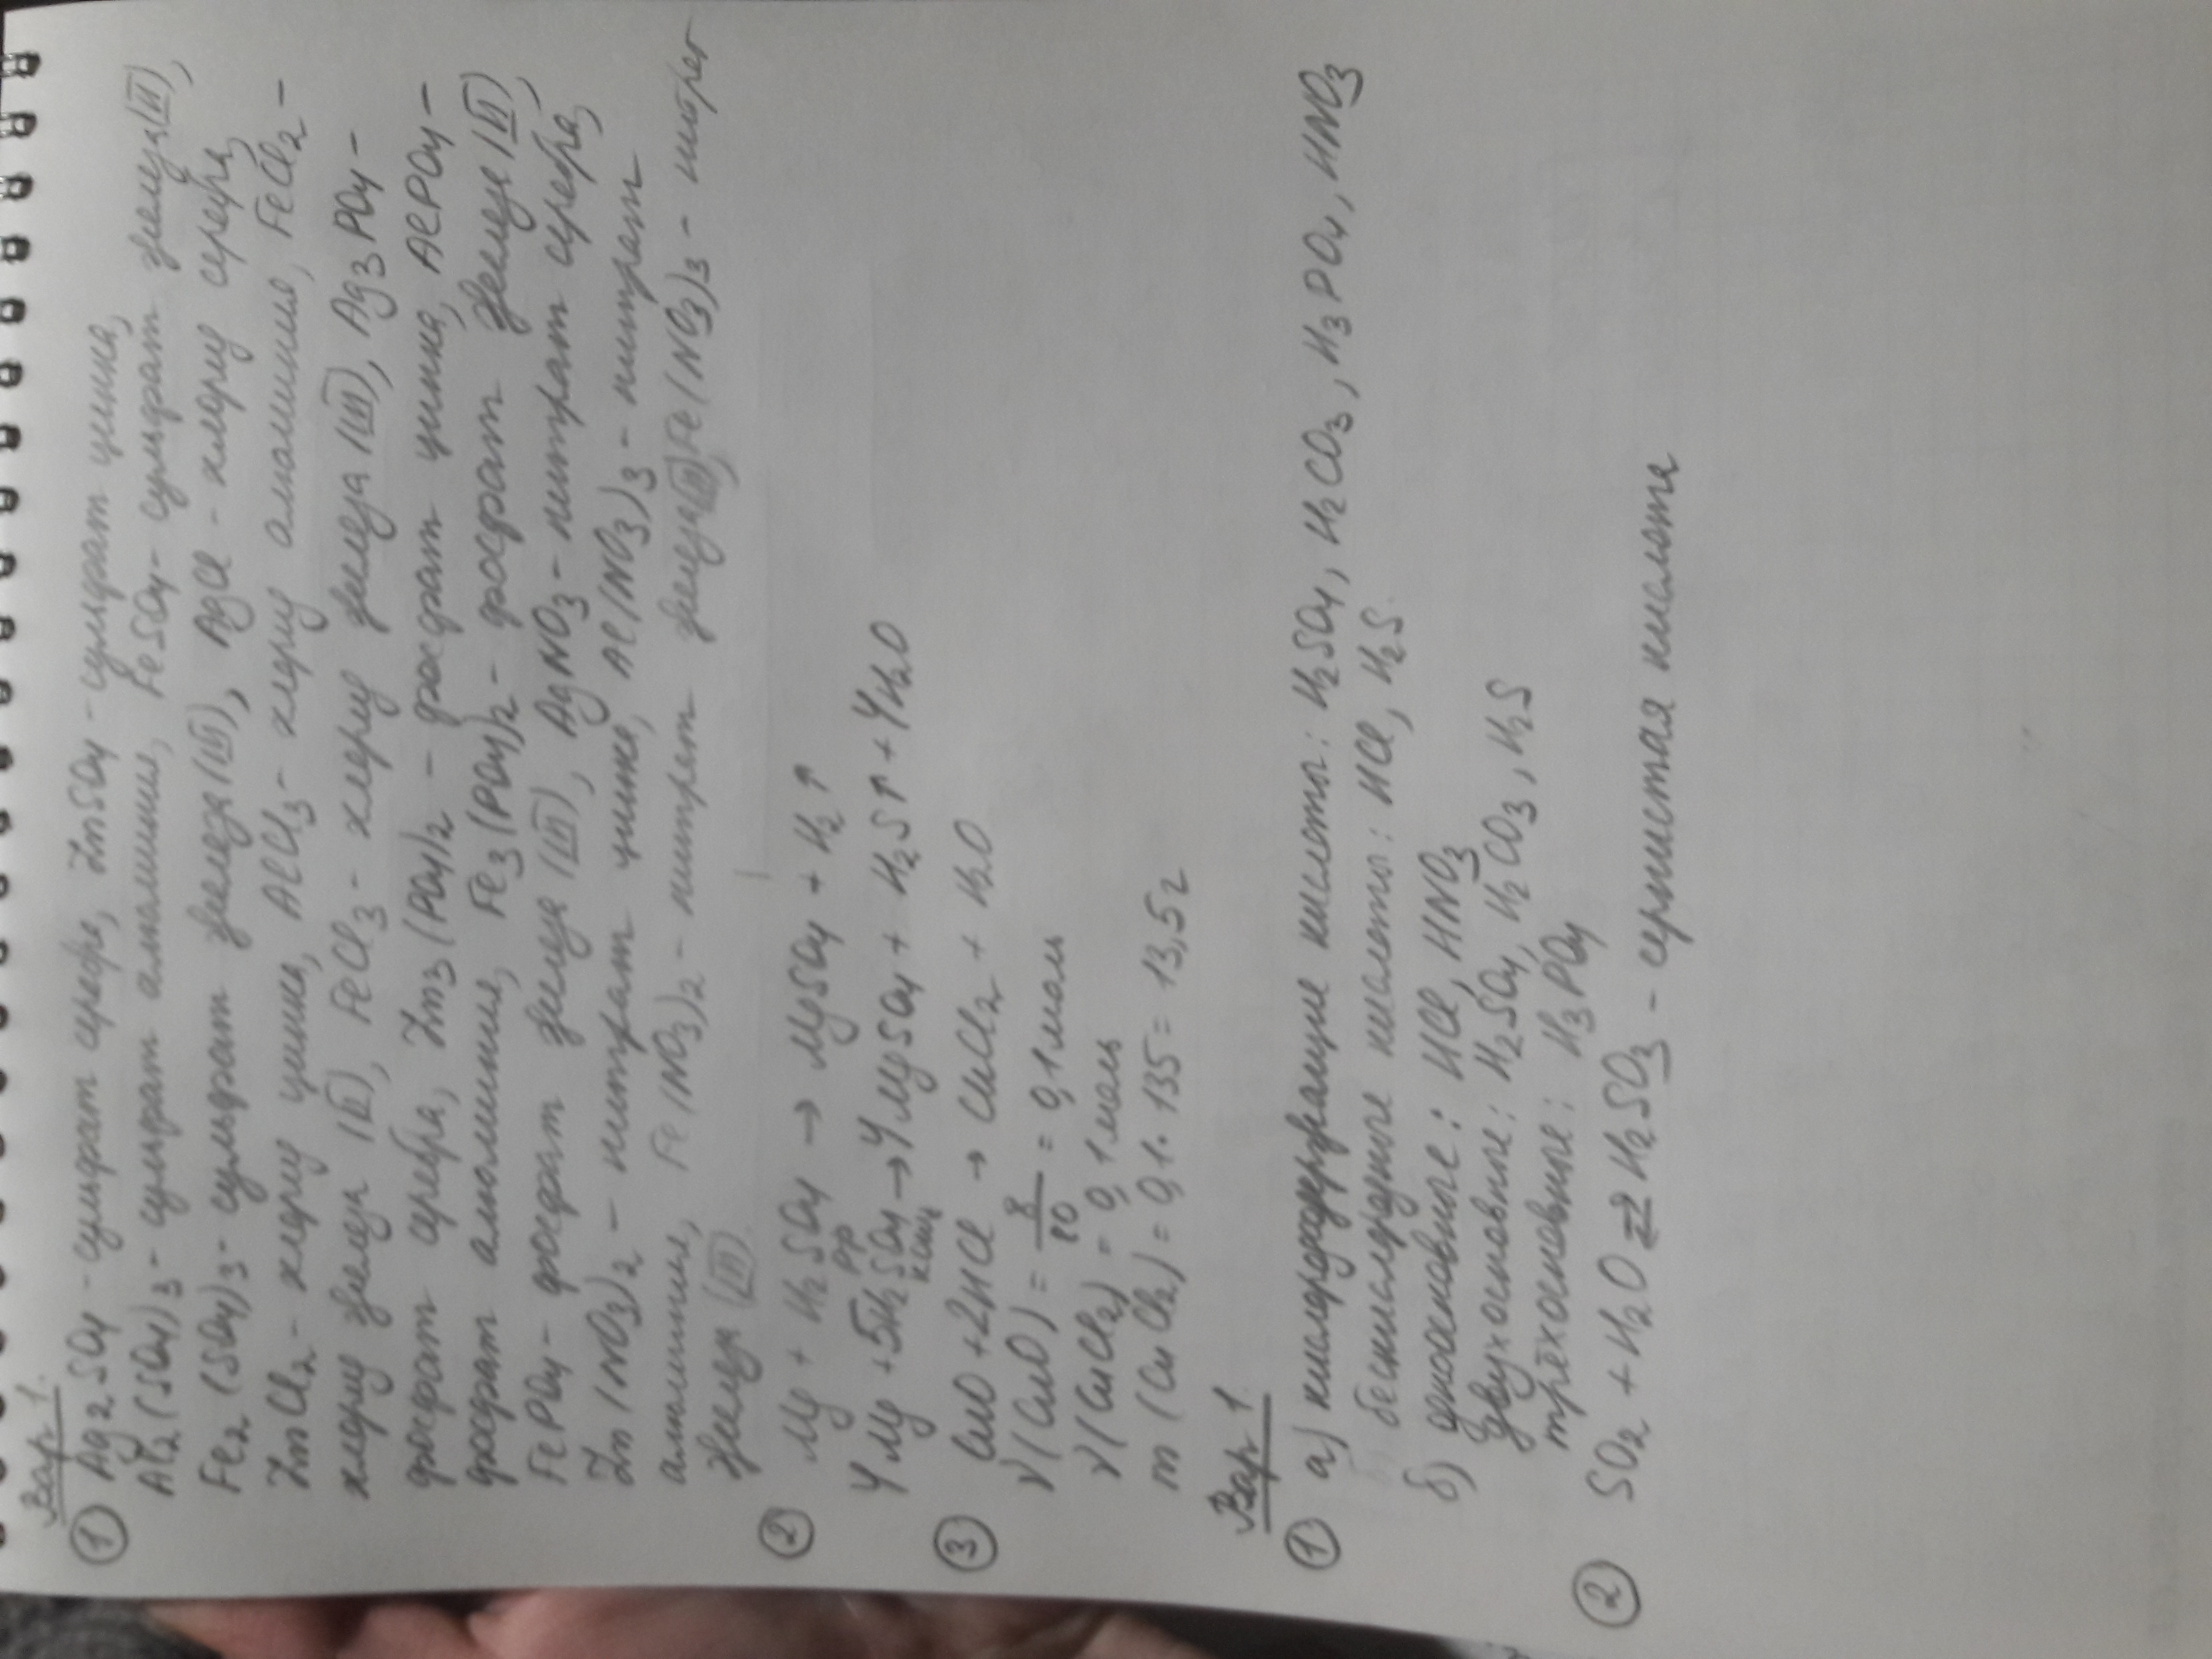 Вар 1.
① Ag2SO4 - сульфат серебра, ZnSO4 - сульфат цинка,
Al2(SO4)3 - сульфат алюминия, FeSO4 - сульфат железа(II),
Fe2(SO4)3 - сульфат железа(III), AgCl - хлорид серебра,
ZnCl2 - хлорид цинка, AlCl3 - хлорид алюминия, FeCl2 -
хлорид железа (II), FeCl3 - хлорид железа (III), Ag3PO4 -
фосфат серебра, Zn3(PO4)2 - фосфат цинка, AlPO4 -
фосфат алюминия, Fe3(PO4)2 - фосфат железа (II),
FePO4 - фосфат железа (III), AgNO3 - нитрат серебра,
Zn(NO3)2 - нитрат цинка, Al(NO3)3 - нитрат
алюминия, Fe(NO3)2 - нитрат железа(II), Fe(NO3)3 - нитрат
железа (III)
② Mg + H2SO4 рр → MgSO4 + H2↑
4Mg + 5H2SO4 конц → 4MgSO4 + H2S↑ + 4H2O
③ CuO + 2HCl → CuCl2 + H2O
ν(CuO) = 8/80 = 0,1 моль
ν(CuCl2) = 0,1 моль
m(CuCl2) = 0,1 · 135 = 13,5 г
Вар 1.
① а) кислородсодержащие кислоты: H2SO4, H2CO3, H3PO4, HNO3
бескислородные кислоты: HCl, H2S.
б) одноосновные: HCl, HNO3
двухосновные: H2SO4, H2CO3, H2S
трёхосновные: H3PO4
② SO2 + H2O ⇄ H2SO3 - сернистая кислота